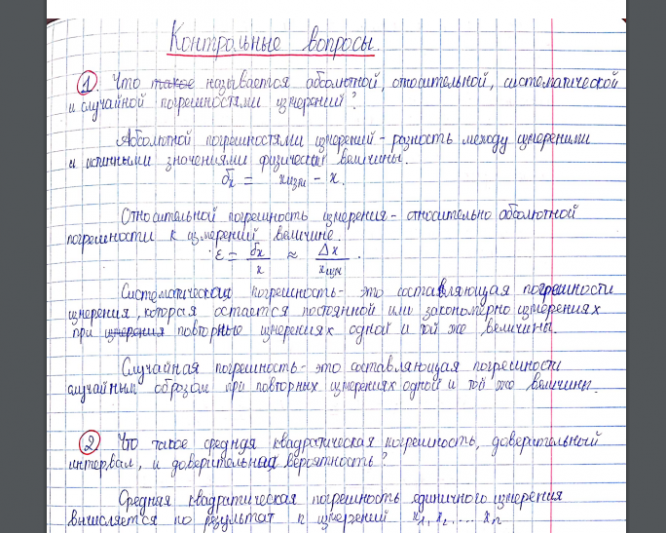 Контрольные вопросы.
1. Что такое называется абсолютной, относительной, систематической
и случайной погрешностями измерений?
Абсолютной погрешностями измерений - разность между измереними
и истинными значениями физической величины.
δx = xизм - x.
Относительной погрешность измерения - относительно абсолютной
погрешности к измерений величине.
ε = δx/x ≈ Δx/xизм.
Систематическая погрешность - это составляющая погрешности
измерения, которая остается постоянной или закономерно измерениях
при измерения повторные измерениях одной и той же величины.
Случайная погрешность - это составляющая погрешности
случайным образом при повторных измерениях одной и той же величины.
2. Что такое средняя квадратическая погрешность, доверительный
интервал, и доверительная вероятность?
Средняя квадратическая погрешность единичного измерения
вычисляется по результат n измерений x1, x2, ... xn